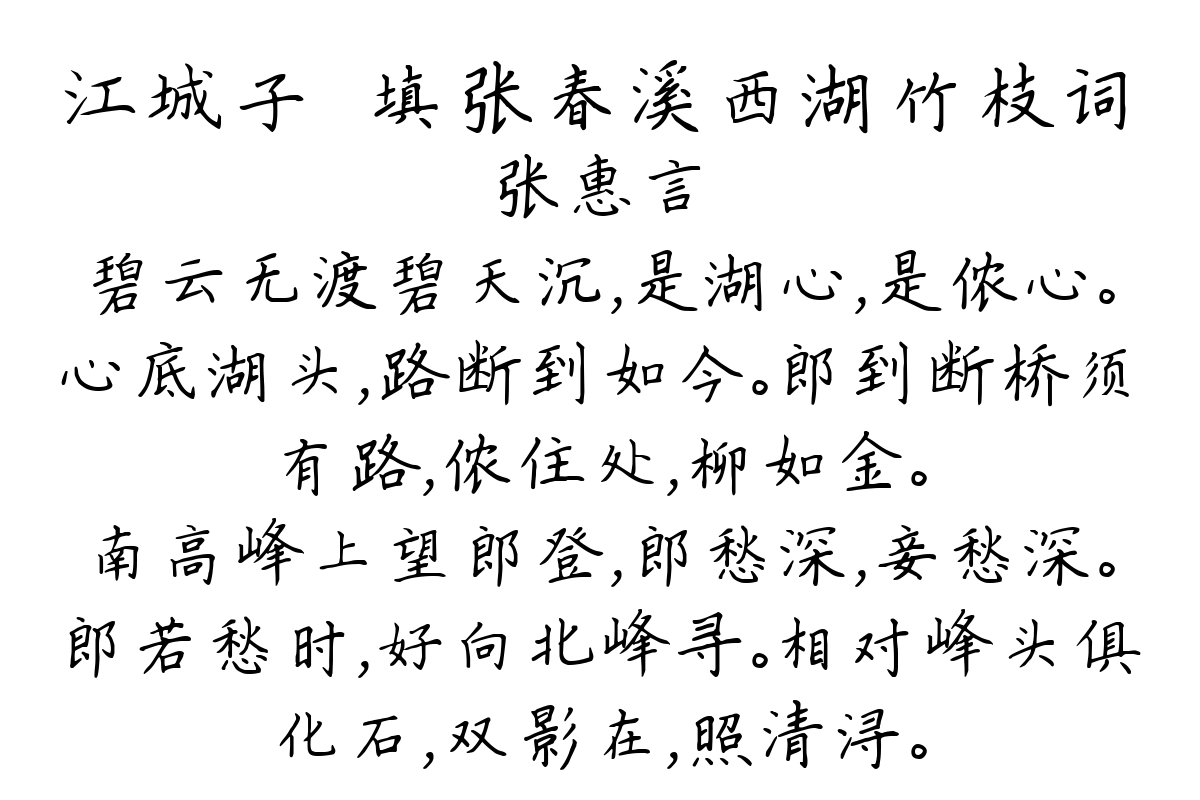 江城子 填张春溪西湖竹枝词
张惠言
碧云无渡碧天沉,是湖心,是侬心。
心底湖头,路断到如今。郎到断桥须
有路,侬住处,柳如金。
南高峰上望郎登,郎愁深,妾愁深。
郎若愁时,好向北峰寻。相对峰头俱
化石,双影在,照清浔。